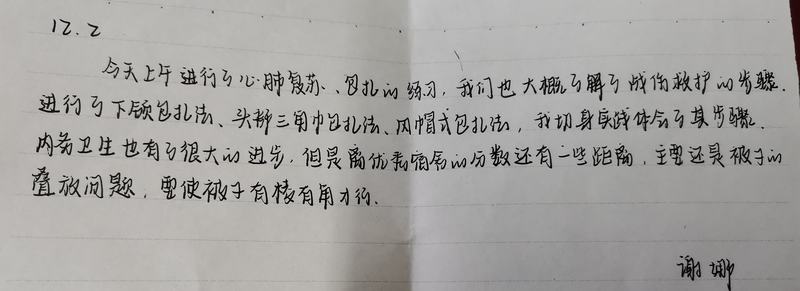 12.2
今天上午进行了心肺复苏、包扎的练习，我们也大概了解了战伤救护的步骤.
进行了下颌包扎法、头部三角巾包扎法、风帽式包扎法，我切身实战体会了其步骤.
内务卫生也有了很大的进步，但是离优秀宿舍的分数还有一些距离，主要还是被子的
叠放问题，要使被子有棱有角才行.
谢娜